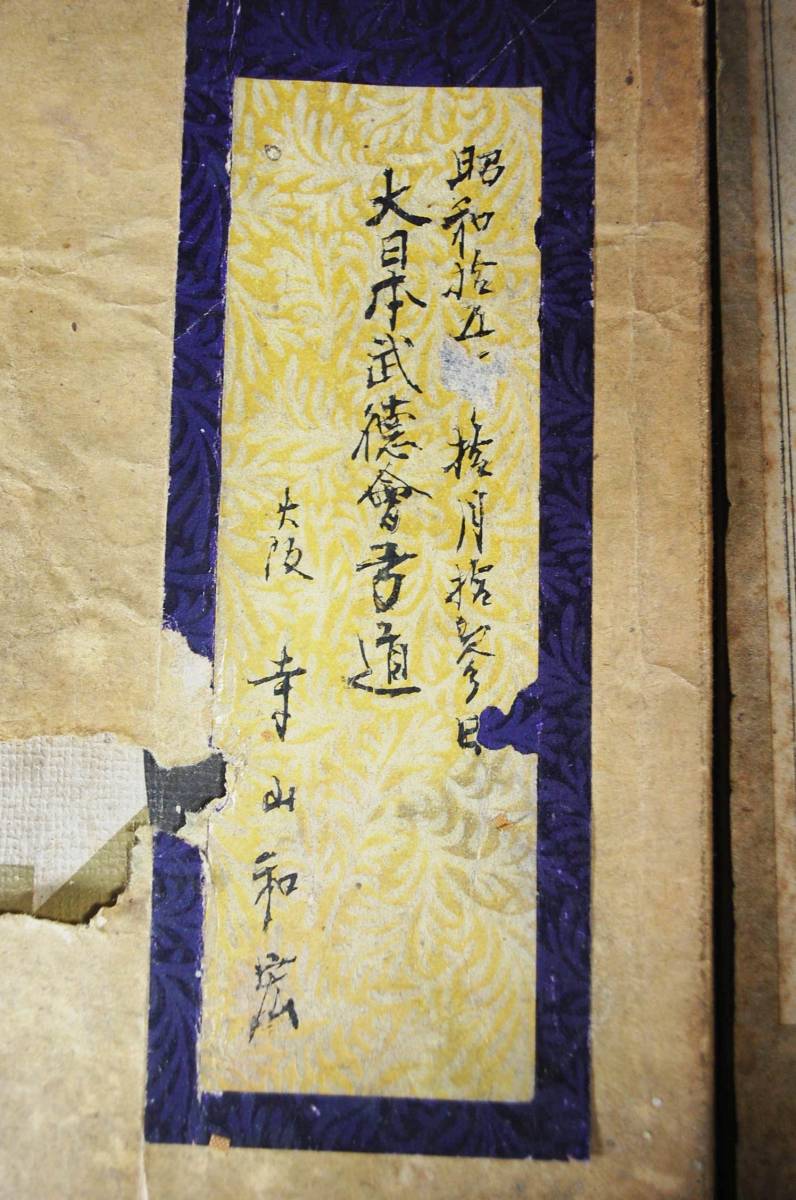 昭和拾五 拾月拾参日
大日本武徳會弓道
大阪 寺山和宏